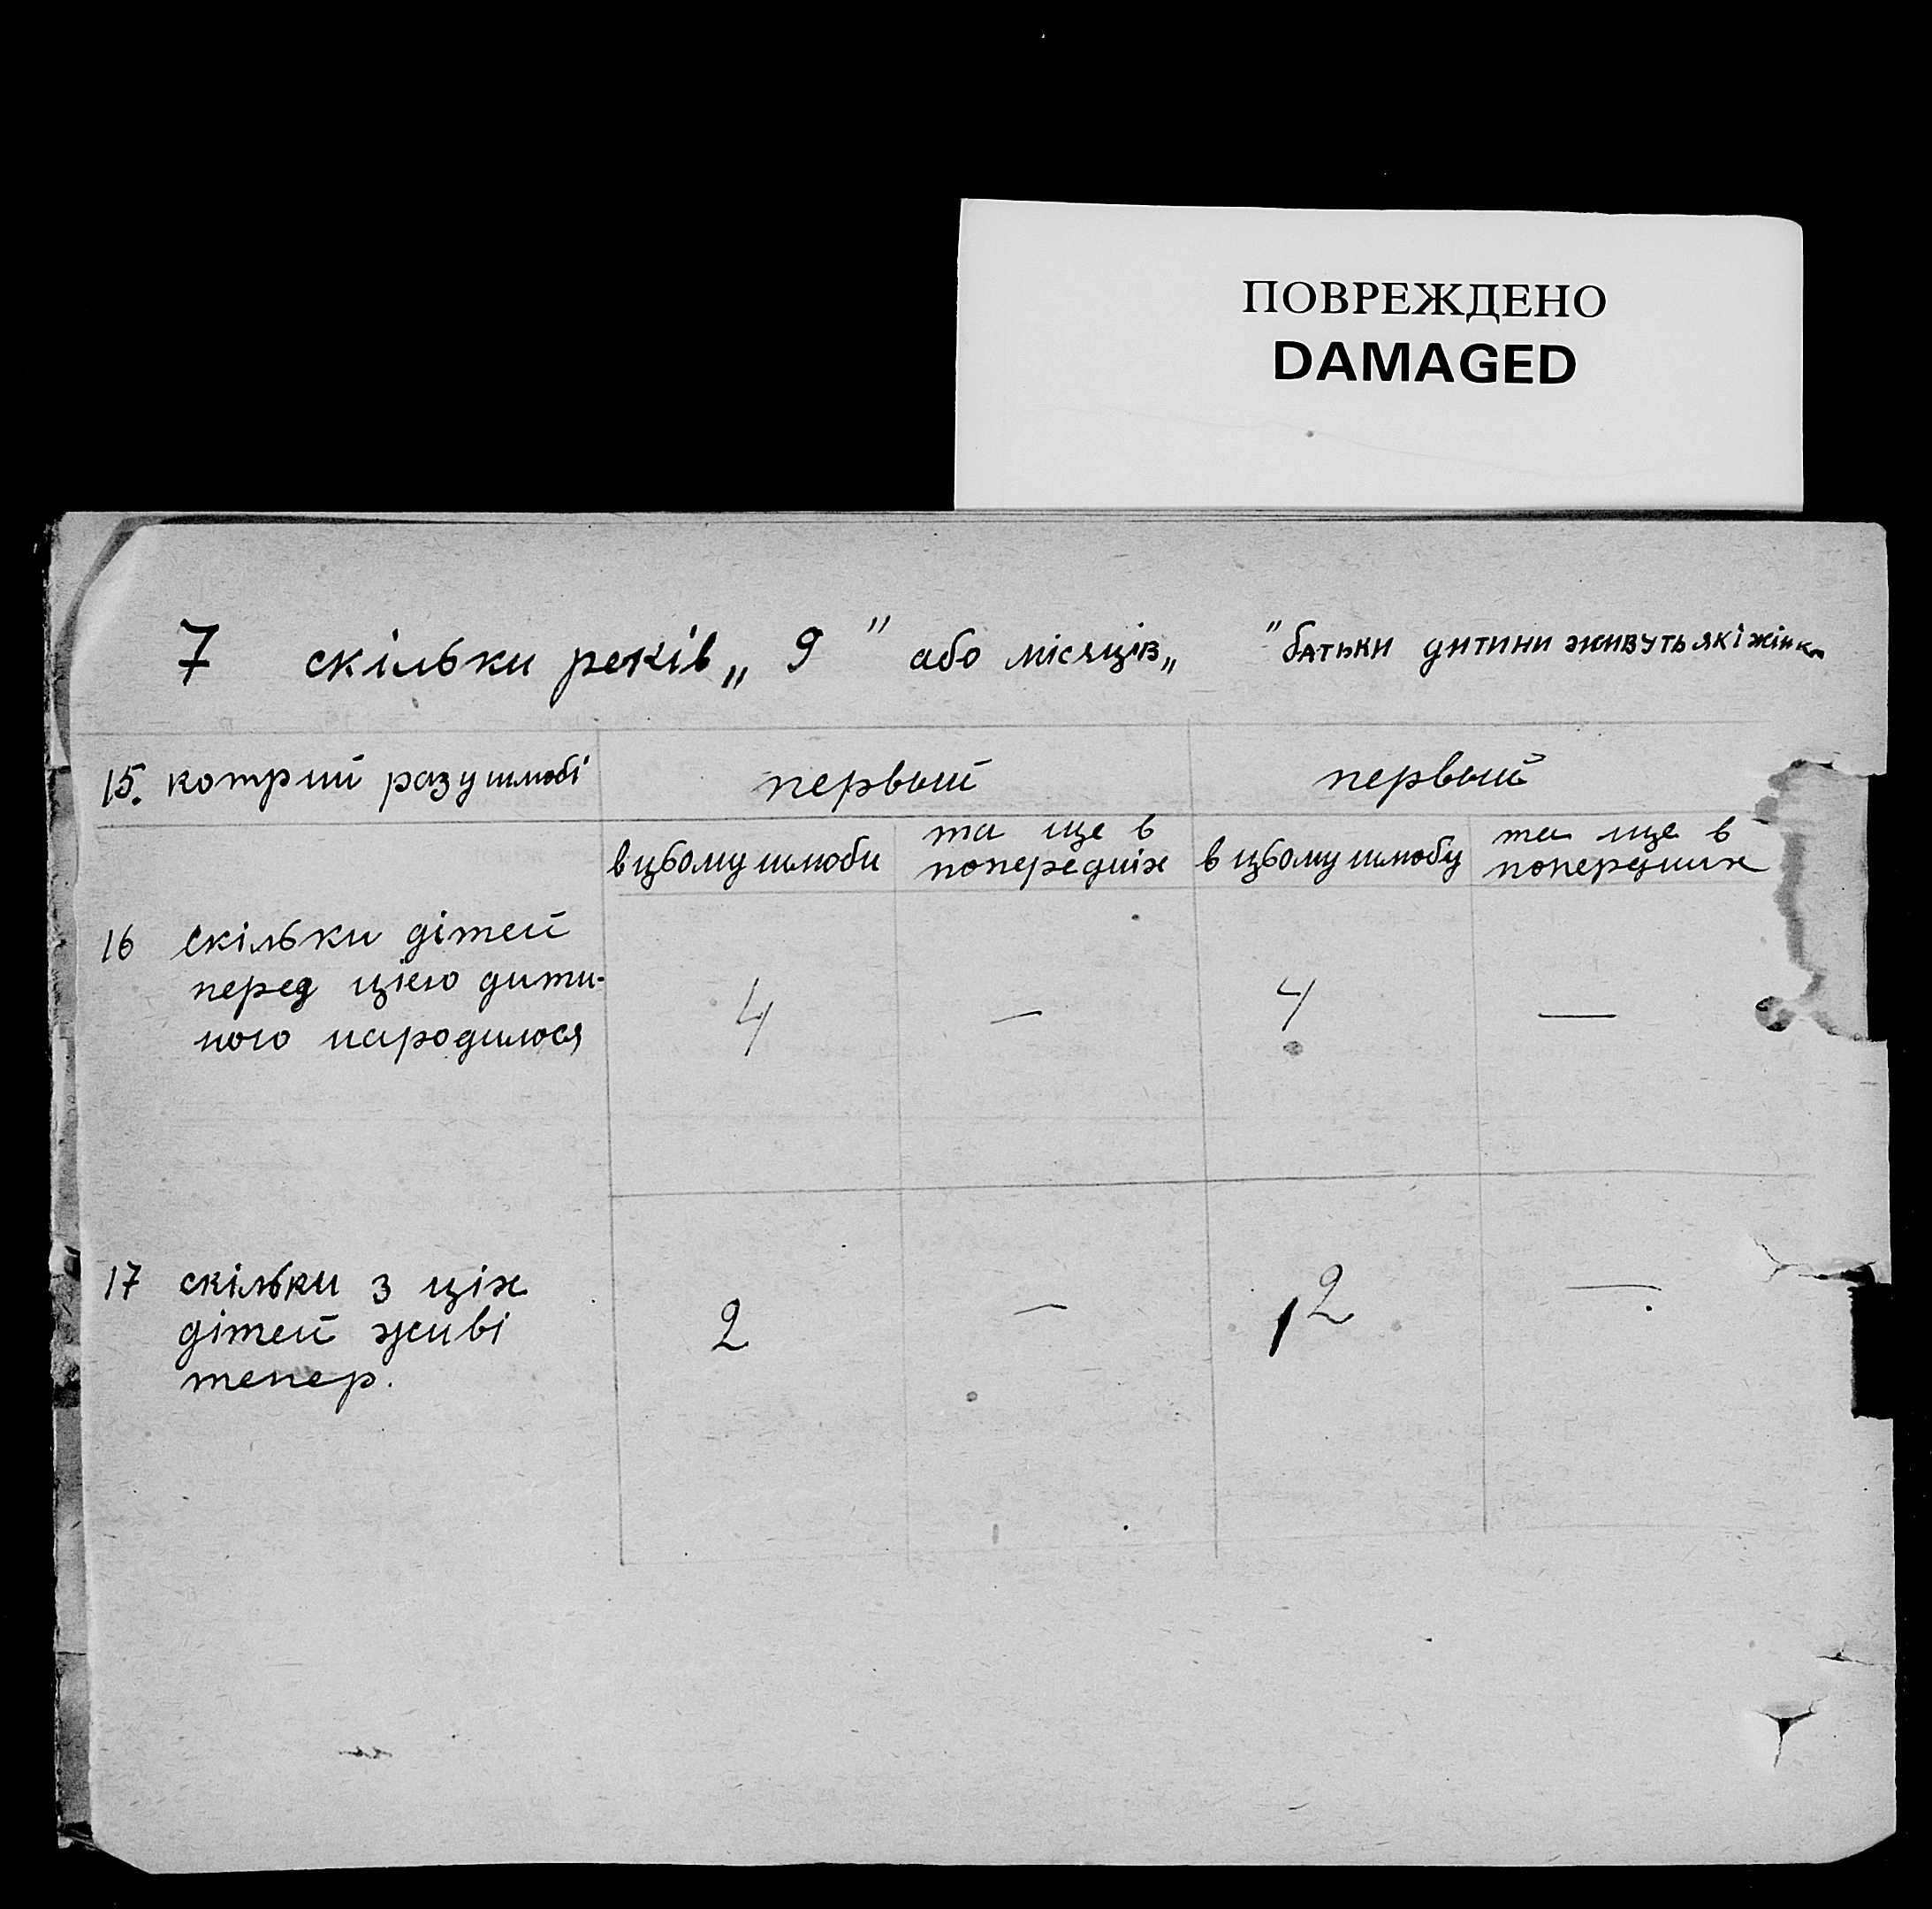 ПОВРЕЖДЕНО
DAMAGED
7 скільки реків „ 9 " або місяців „ " батьки дитини живуть які жінк
15. котрий раз у шлюбі первый первый
в цьому шлюби та ще в попередніх в цьому шлюбу та ще в попередних
16 скільки дітей
перед цією дити-
ною народилося 4 — 4 —
17 скільки з ціх
дітей живі
тепер. 2 — 2 —